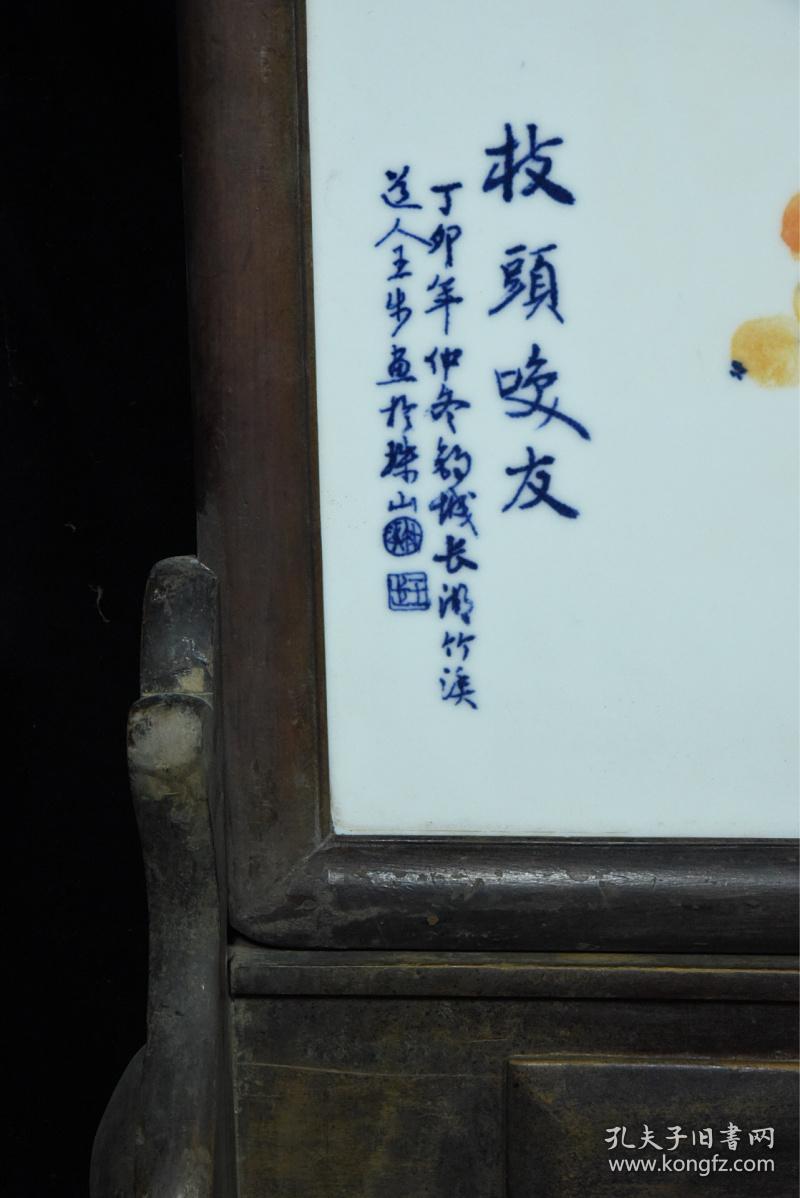 枝頭噯友
丁卯年仲冬豹城長湖竹溪
道人王步畫於珠山
孔夫子旧書网
www.kongfz.com